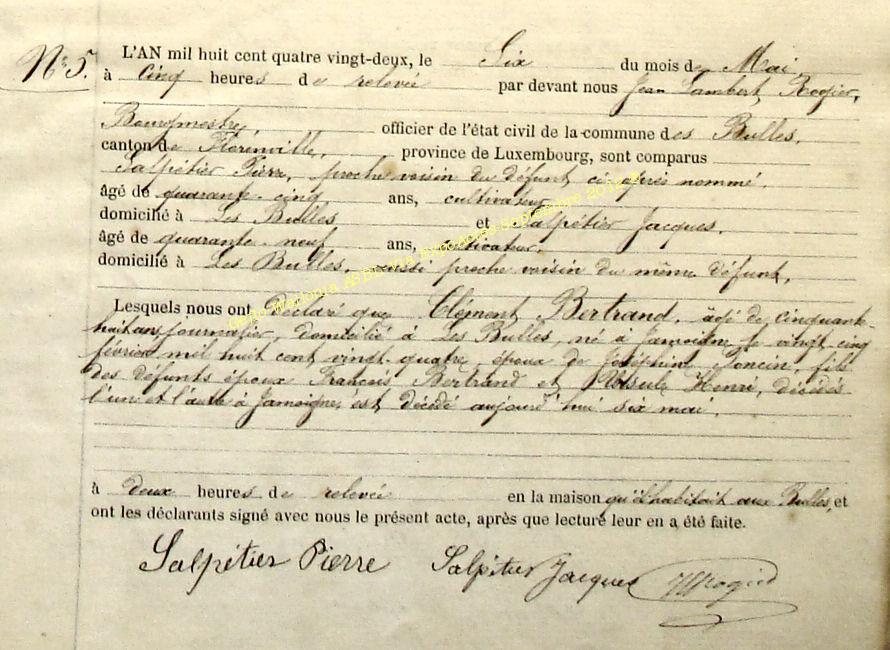 N° 5.
L'AN mil huit cent quatre vingt-deux, le Six du mois de Mai,
à Cinq heures de relevée par devant nous Jean Lambert Rogier,
Bourgmestre, officier de l'état civil de la commune des Bulles,
canton de Florenville, province de Luxembourg, sont comparus
Salpétier Pierre, proche voisin du défunt ci après nommé,
âgé de quarante-cinq ans, cultivateur,
domicilié à Les Bulles et Salpétier Jacques,
âgé de quarante-neuf ans, cultivateur,
domicilié à Les Bulles, aussi proche voisin du même défunt,
Lesquels nous ont Déclaré que Clément Bertrand, agé de cinquante-
huit ans, journalier, domicilié à Les Bulles, né à Jamoigne le vingt cinq
février mil huit cent vingt-quatre, époux de Joséphine Poncin, fils
des défunts époux François Bertrand et Ursule Henri, décédés
l'un et l'autre à Jamoigne, est décédé aujourd'hui six mai,
à deux heures de relevée en la maison qu'il habitait aux Bulles, et
ont les déclarants signé avec nous le présent acte, après que lecture leur en a été faite.
Salpétier Pierre Salpétier Jacques JLRogier